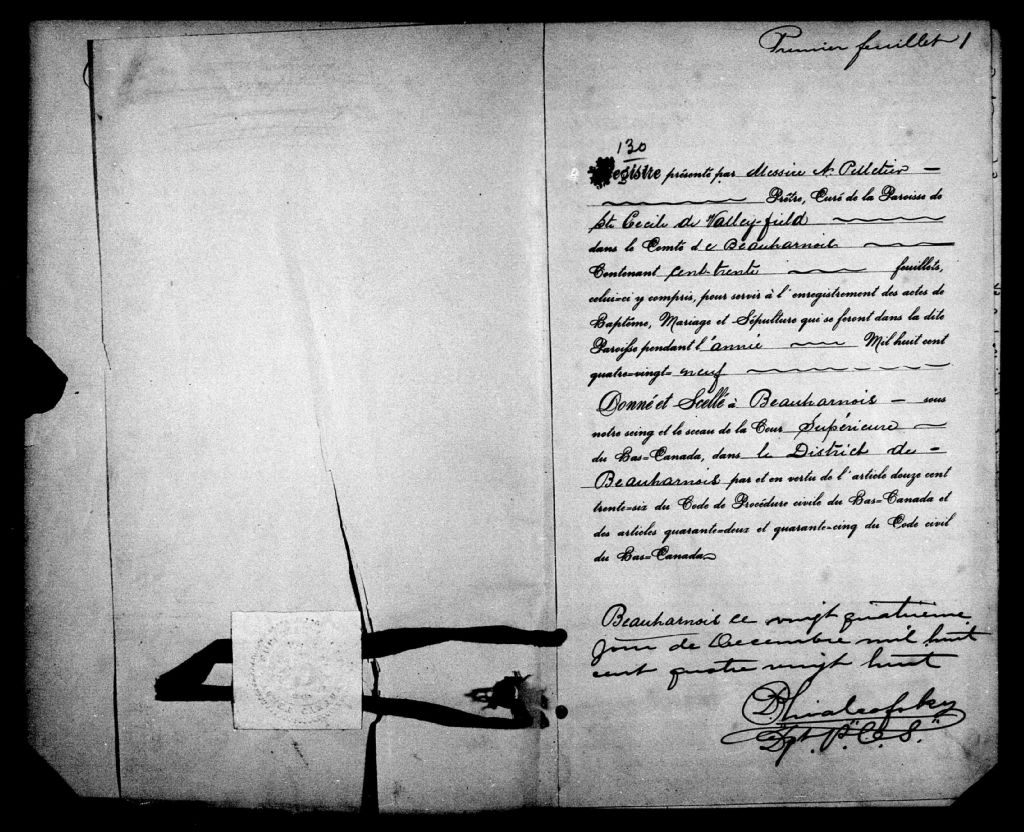 Premier feuillet 1
130
Registre présenté par Messire N. Pelletier
Prêtre, Curé de la Paroisse de
Ste Cecile de Valleyfield
dans le Comté de Beauharnois
Contenant cent-trente feuillets,
celui-ci y compris, pour servir à l'enregistrement des actes de
Baptême, Mariage et Sépulture qui se feront dans la dite
Paroisse pendant l'année Mil huit cent
quatre-vingt-neuf
Donné et Scellé à Beauharnois sous
notre seing et le sceau de la Cour Supérieure
du Bas-Canada, dans le District de
Beauharnois par et en vertu de l'article douze cent
trente-six du Code de Procédure civile du Bas-Canada et
des articles quarante-deux et quarante-cinq du Code civil
du Bas-Canada
Beauharnois ce vingt quatrieme
jour de Decembre mil huit
cent quatre vingt huit
P. C. S.